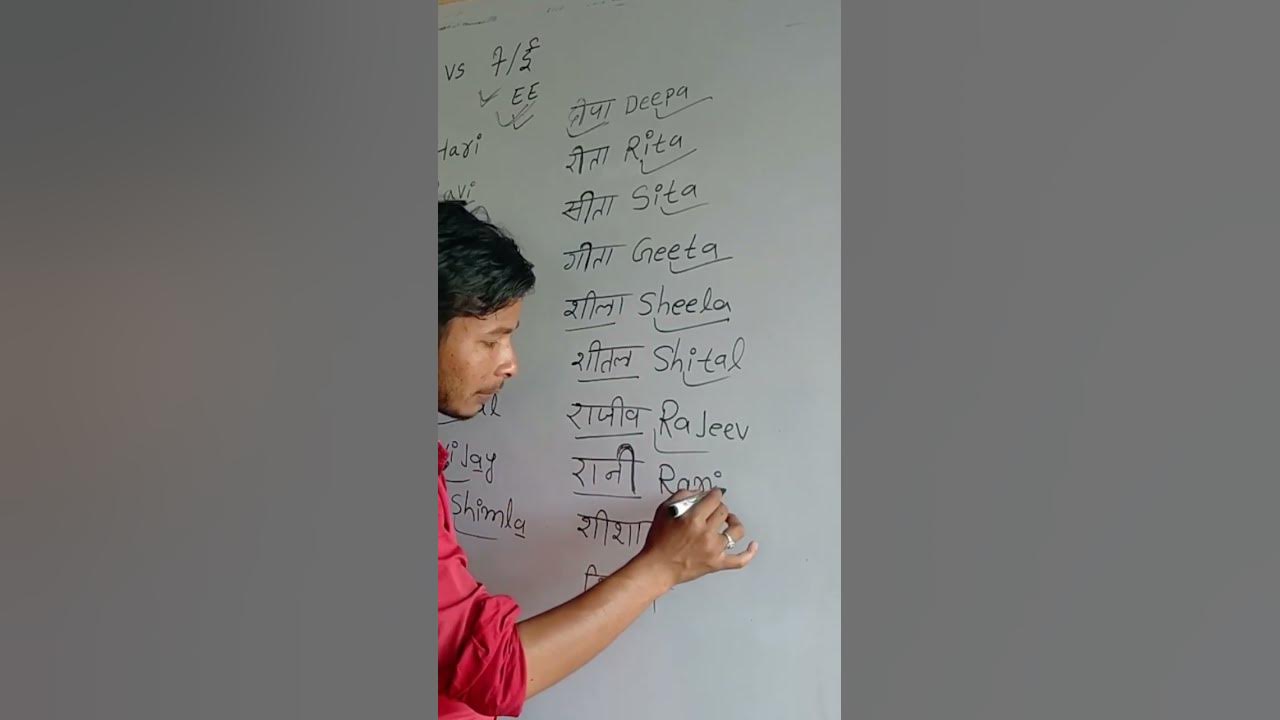 vs ी/ई
EE
दीपा Deepa
Hari रीता Rita
avi सीता Sita
गीता Geeta
शीला Sheela
शीतल Shital
al राजीव RaJeev
iJay रानी Rani
Shimla शीशा